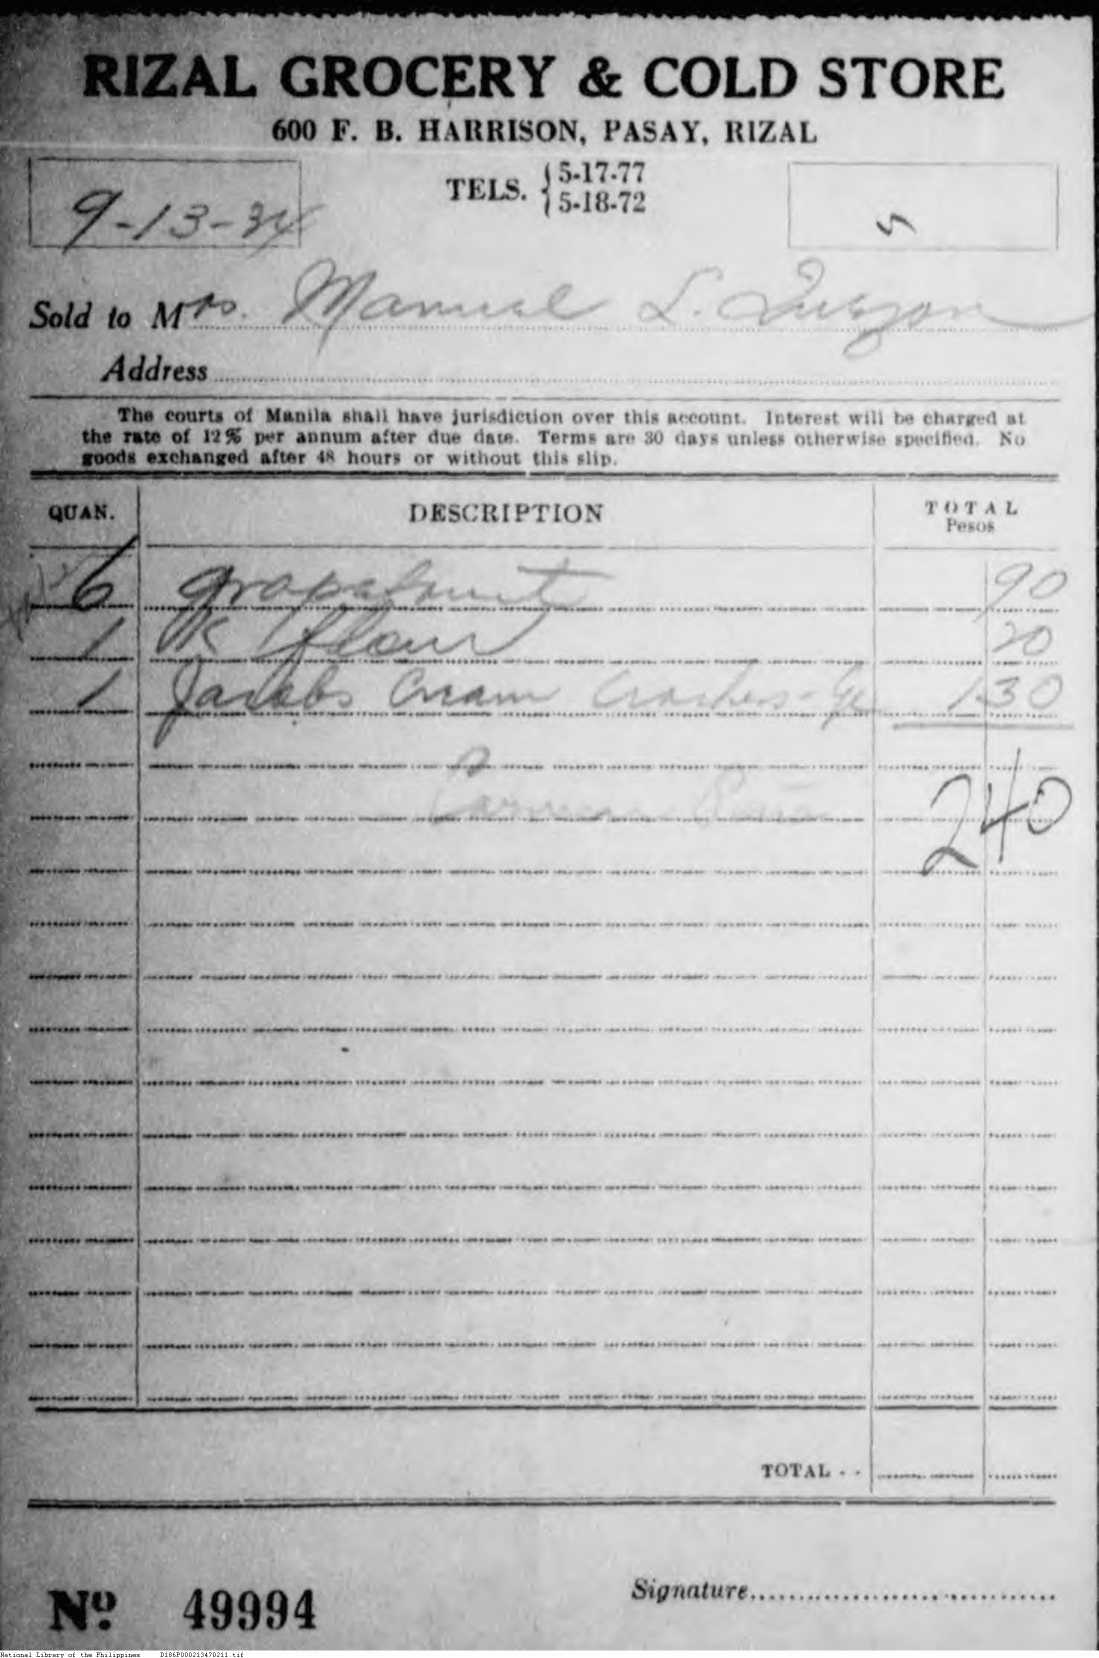 RIZAL GROCERY & COLD STORE
600 F. B. HARRISON, PASAY, RIZAL
TELS. { 5-17-77
5-18-72
9-13-34
5
Sold to Mrs. Manuel L. Quezon
Address
The courts of Manila shall have jurisdiction over this account. Interest will be charged at
the rate of 12% per annum after due date. Terms are 30 days unless otherwise specified. No
goods exchanged after 48 hours or without this slip.
QUAN. DESCRIPTION TOTAL
Pesos
6 grapefruit 90
1 K flour 20
1 Jacobs Cream Crackers 1 30
2 40
TOTAL - -
Signature
No. 49994
National Library of the Philippines D186P000213470211.tif